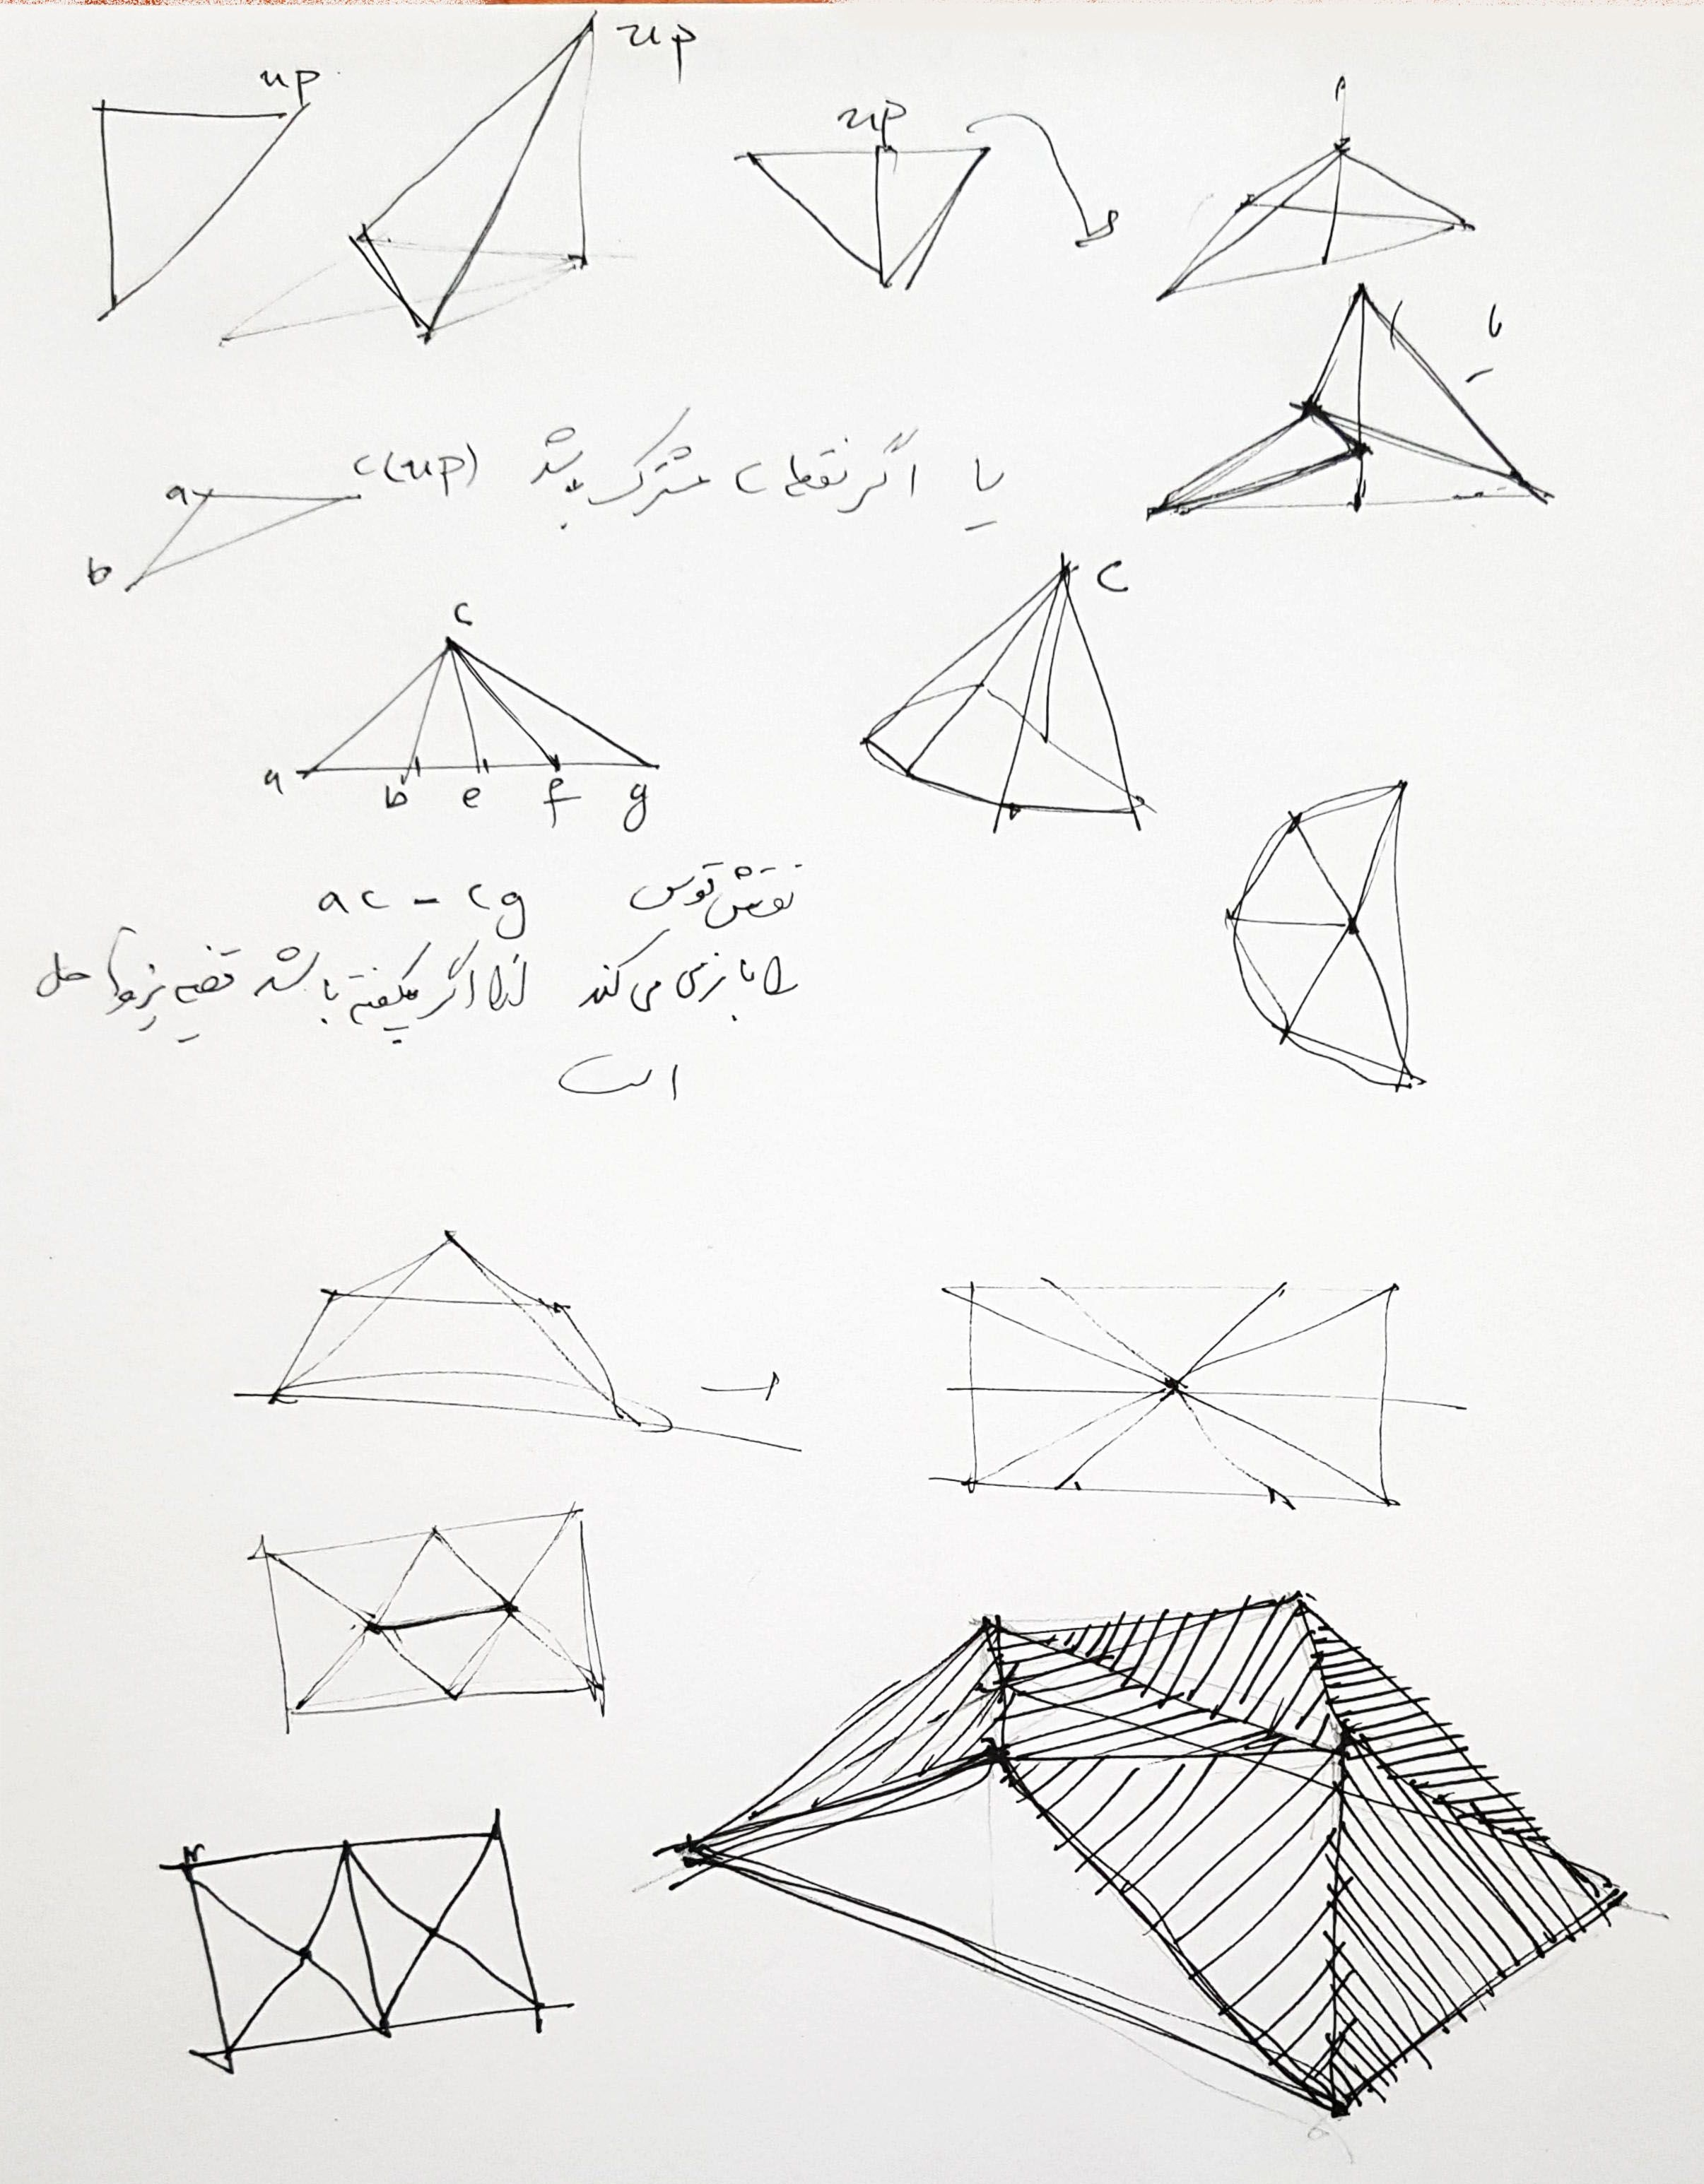 up
up
up
یا
a c (up) یا اگر نقطه c مشترک باشد
b
c
c
a b e f g
نقش قوس ac - cg
را بازی می‌کند لذا اگر یکفته باشد قضیه نیز حل
است